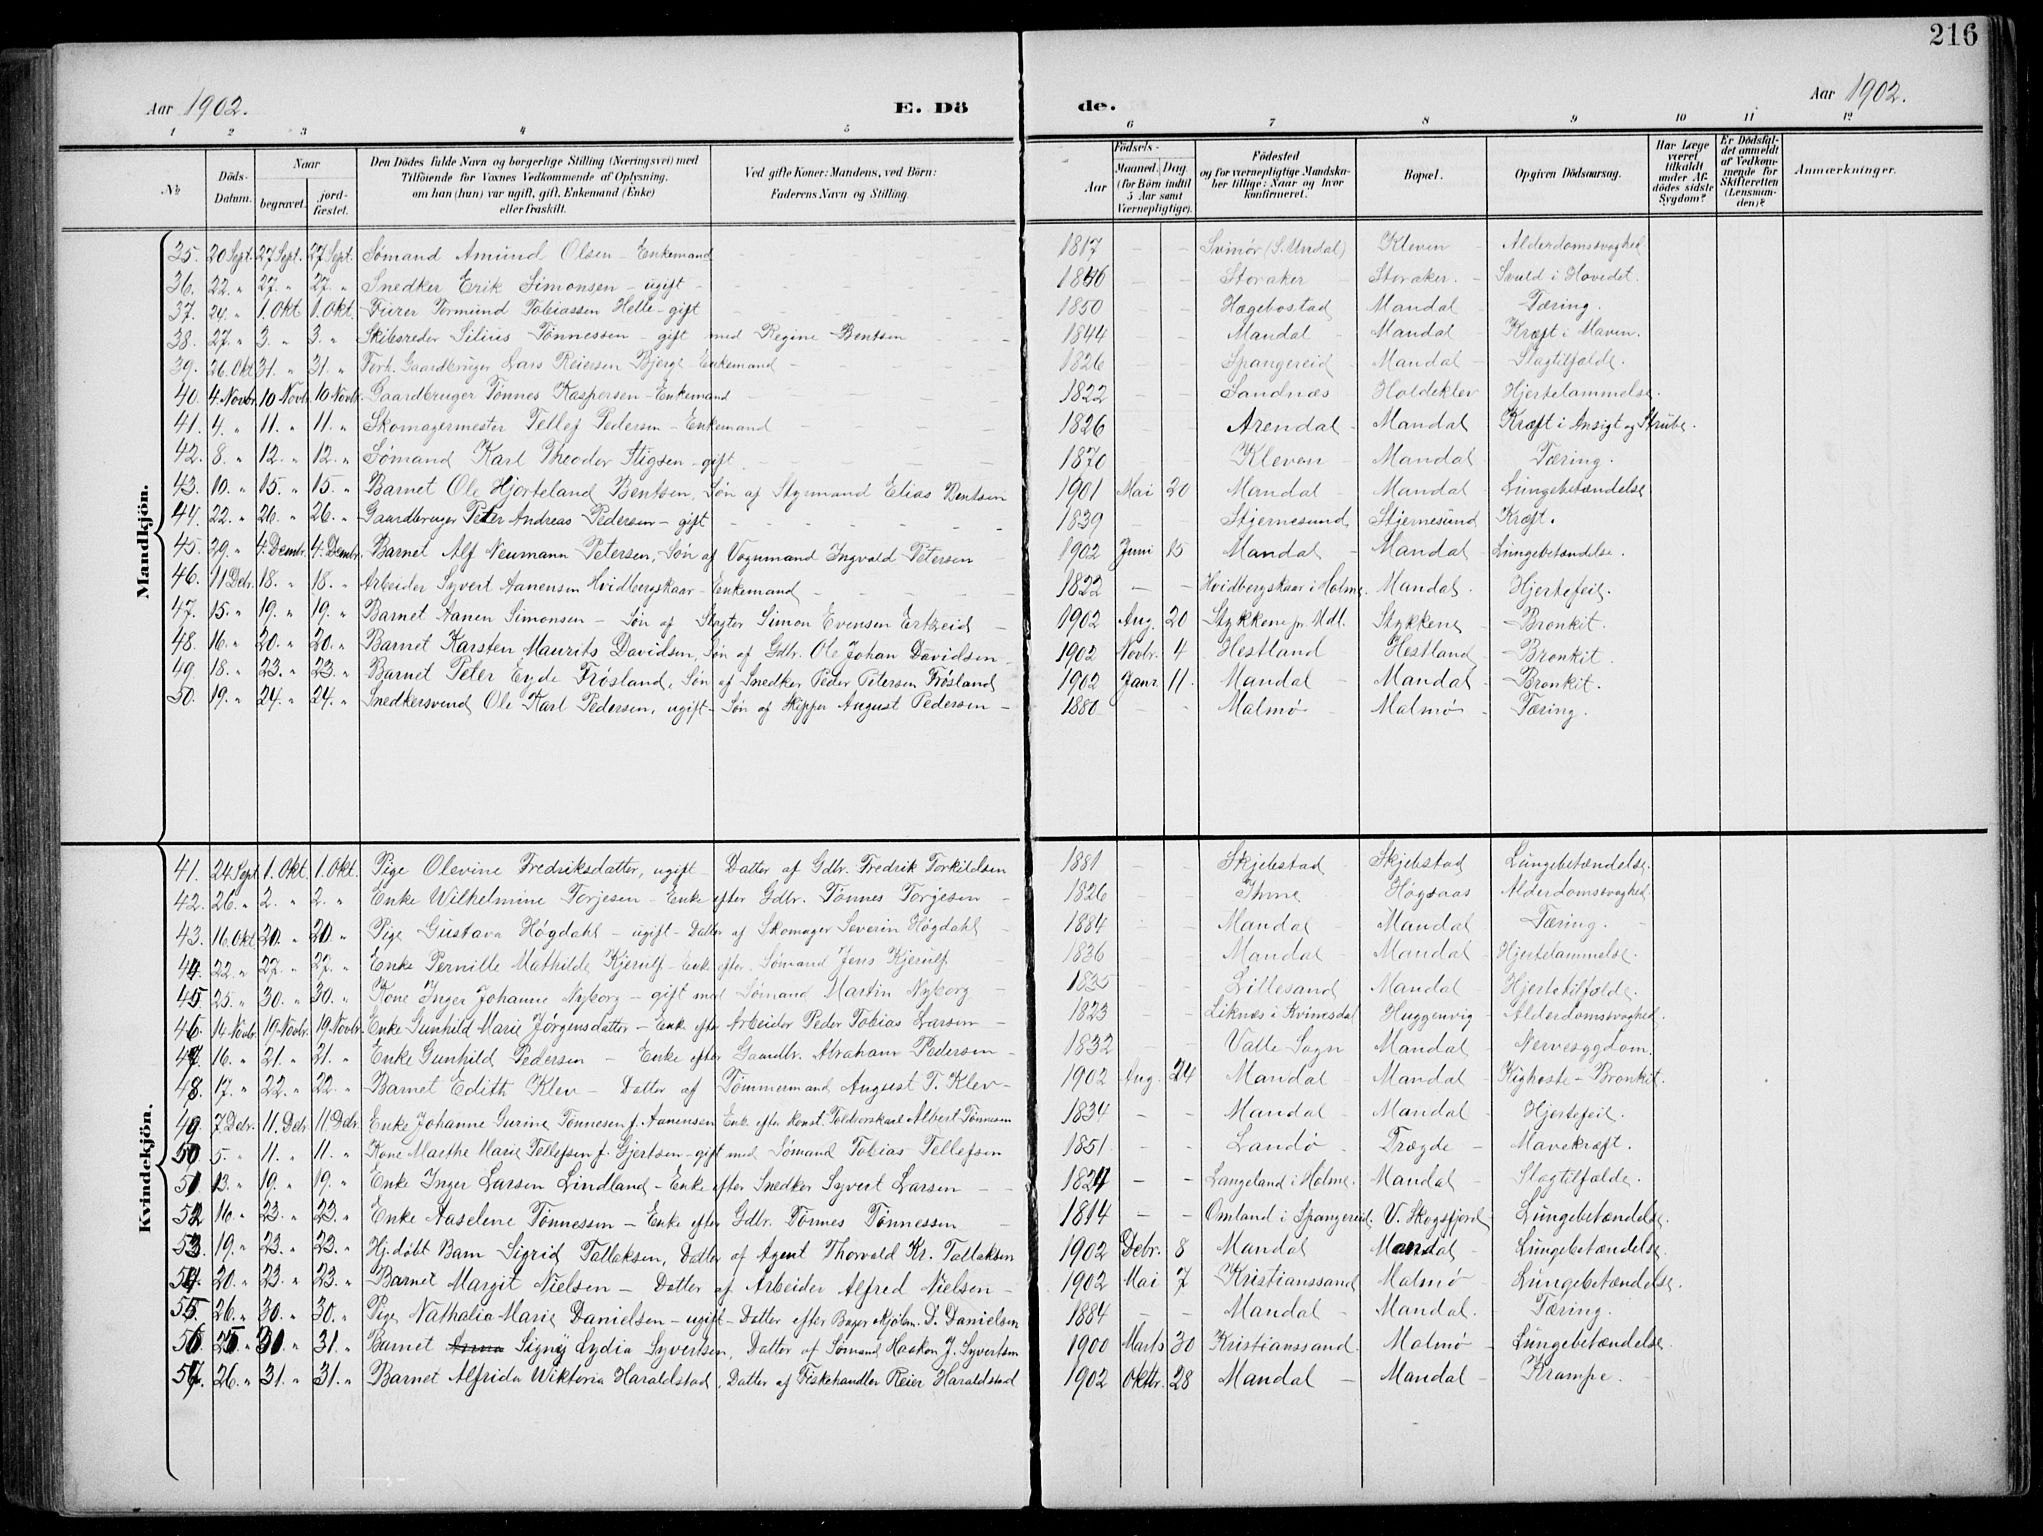 216
Aar 1902. E. Dö de. Aar 1902.
1 2 3 4 5 6 7 8 9 10 11 12
№ Döds-Datum. Naar begravet. jord-fæstet. Den Dödes fulde Navn og borgerlige Stilling (Næringsvei) med Tilföiende for Voxnes Vedkommende af Oplysning, om han (hun) var ugift, gift, Enkemand (Enke) eller fraskilt. Ved gifte Koner: Mandens, ved Börn: Faderens Navn og Stilling. Födsels- Aar Maaned. Dag. (for Börn indtil 5 Aar samt Værnepligtige). Födested og for værnepligtige Mandskaber tillige: Naar og hvor konfirmeret. Bopæl. Opgiven Dödsaarsag. Har Læge været tilkaldt under Afdödes sidste Sygdom? Er Dödsfaldet anmeldt af Vedkommende for Skifteretten (Lensmanden)? Anmærkninger.
Mandkjön.
35. 20 Sept. 27 Sept. 27 Sept. Sømand Amund Olsen - Enkemand - - 1817 - - Svinør (S. Undal) Kleven - Alderdomssvaghed
36. 22. " 27. " 27. " Snedker Erik Simonsen - ugift - 1846 - - Storaker - Storaker. - Svuld i Hovedet.
37. 24. " 1. Okt 1. Okt. Furer Tormund Tobiassen Helle - gift 1850 - - Hægebostad Mandal - Tæring.
38. 27. " 3. " 3. " Skibsreder Silius Tønnessen - gift med Regine Bentsen 1844 - - Mandal - Mandal - Kræft i Maven.
39. 26. Okt 31. " 31. " Forh. Gaardbruger Lars Reiersen Bjerge Enkemand - 1826 - - Spangereid - Mandal - Slagtilfælde.
40. 4 Novbr. 10 Novbr. 10 Novbr. Gaardbruger Tønnes Kaspersen - Enkemand 1822 - - Sandnæs - Holdeklev Hjertelammelse.
41. 4. " 11. " 11. " Skomagermester Tellef Pedersen - Enkemand 1826 - - Arendal - Mandal - Kræft i Ansigt og Strube.
42. 8. " 12. " 12. " Sømand Karl Theodor Stigsen - gift. 1870 - - Kleven Mandal - Tæring.
43. 10. " 15. " 15. " Barnet Ole Hjorteland Bentsen, Søn af Styrmand Elias Bentsen 1901 Mai 20 Mandal - Mandal - Lungebetændelse
44. 22. " 26. " 26. " Gaardbruger Peter Andreas Pedersen - gift - 1839 - - Stjernesund Stjernesund Kræft.
45. 29. " 4. Dembr. 4. Dembr. Barnet Alf Neumann Petersen, Søn af Vognmand Ingvald Petersen - 1902 Juni 15 Mandal - Mandal - Lungebetændelse.
46. 11 Debr. 18. " 18. " Arbeider Syvert Aanensen Hvidbergskaar - Enkemand - 1822 - - Hvidbergskaar i Holme. Mandal. - Hjertefeil.
47. 15. " 19. " 19. " Barnet Aanen Simonsen - Søn af Slagter Simon Evensen Ertzeid - 1902 Aug. 20 Stykkene pr. Mdl. Stykkene - Bronkit.
48. 16. " 20. " 20. " Barnet Karsten Maurits Davidsen, Søn af Gdbr. Ole Johan Davidsen - 1902 Novbr. 4 Hestland Hestland - Bronkit.
49. 18. " 23. " 23. " Barnet Peter Eyde Frøsland, Søn af Snedker Peder Petersen Frøsland 1902 Janr. 11. Mandal - Mandal - Bronkit.
50. 19. " 24. " 24. " Snedkersvend Ole Karl Pedersen, ugift - Søn af Skipper August Pedersen - 1880 - - Malmø - Malmø - Tæring.
Kvindekjön.
41. 24 Sept. 1. Okt. 1. Okt. Pige Olevine Fredriksdatter, ugift - Datter af Gdbr. Fredrik Torkildsen 1881 - - Skjebstad - Skjebstad Lungebetændelse.
42. 26. " 2. " 2. " Enke Wilhelmine Torjesen - Enke efter Gdbr. Tønnes Torgesen - 1826 - - Ihme - Høgsaas Alderdomssvaghed.
43. 16. Okt 20. " 20 " Pige Gustava Høgdahl - ugift - Datter af Skomager Severin Høgdahl - 1884 - - Mandal - Mandal - Tæring. -
44. 22. " 27. " 27. " Enke Pernille Mathilde Kjerulf - Enke efter. Sømand Jens Kjerulf 1836 - - Mandal - Mandal - Hjertelammelse.
45 25. " 30. " 30. " Kone Inger Johanne Nyborg - gift med Sømand Martin Nyborg - 1835 - - Lillesand Mandal - Hjertetilfælde.
46. 14 Novbr. 19 Novbr. 19 Novbr. Enke Gunhild Marie Jørgensdatter - Enke efter Arbeider Peder Tobias Larsen - 1823 - - Liknæs i Kvinesdal Huggenvig - Alderdomssvaghed.
47. 16. " 21. " 21. " Enke Gunhild Pedersen - Enke efter Gaardbr. Abraham Pedersen - 1832 - - Valle Sogn Mandal - Nervesygdom.
48. 17. " 22. " 22. " Barnet Edith Klev - Datter af Tømmermand August T. Klev - 1902 Aug. 24 Mandal - Mandal - Kighoste - Bronkit.
49. 7 Debr. 11. Debr. 11 Debr. Enke Johanne Gurine Tønnesen f. Aanensen Enke efter konst. Tolderskarl Albert Tønnesen 1834 - - Mandal - Mandal - Hjertefeil.
50 5. " 11. " 11. " Kone Marthe Marie Tellefsen f. Gjertsen - gift med Sømand Tobias Tellefsen 1851. - - Landø - Trægde - Mavekræft.
51 13. " 19. " 19. " Enke Inger Larsen Lindland - Enke efter Snedker Syvert Larsen - - Langeland i Holme. Mandal - Slagtilfælde.
52 16. " 23. " 23. " Enke Aaselene Tønnessen - Enke efter Gdbr. Tønnes Tønnessen - 1814 - - Omland i Spangereid. V. Skogsfjord Lungebetændelse.
53. 19. " 23. " 23. " Hj. døbt Barn Sigrid Tallaksen, Datter af Agent Thorvald Kr. Tallaksen 1902 Debr. 8 Mandal Mandal - Lungebetændelse
54. 20. " 23. " 23. " Barnet Margit Nielsen - Datter af Arbeider Alfred Nielsen - 1902 Mai 7 Kristianssand Malmø - Lungebetændelse.
55. 26. " 30. " 30. " Pige Nathalia Marie Danielsen - ugift - Datter efter Bager D. Danielsen 1884 - - Mandal - Mandal. - Tæring.
56. 25 " 31. " 31. " Barnet Anna Signy Lydia Syvertsen, Datter af Sømand Haakon J. Syvertsen 1900 Marts 30 Kristianssand. Malmø - Lungebetændelse.
57. 26. " 31. " 31. " Barnet Alfrida Wiktoria Haraldstad, Datter af Fiskehandler Reier Haraldstad 1902 Oktbr. 28 Mandal - Mandal - Krampe. -